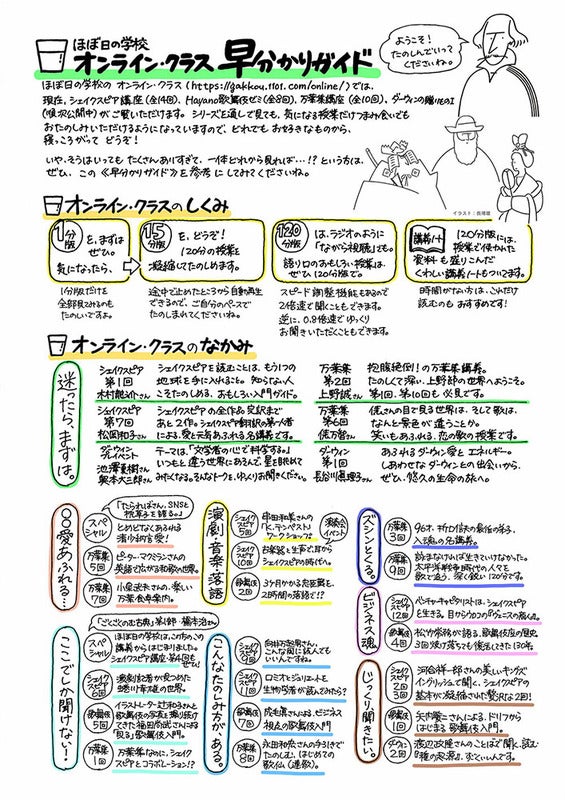 ほぼ日の学校
オンライン・クラス早分かりガイド
ようこそ!
たのしんでいって
くださいね。
ほぼ日の学校の オンライン・クラス(https://gakkou.1101.com/online/)では、
現在、シェイクスピア講座(全14回)、Hayano歌舞伎ゼミ(全8回)、万葉集講座(全10回)、ダーウィンの贈りもの I
(順次公開中)が ご覧いただけます。シリーズを通して見ても、気になる授業だけつまみ食いでも
おたのしみいただけるようになっていますので、どれでも お好きなものから、
寝っころがって どうぞ!
いや、そうはいっても たくさんありすぎて、一体どれから見れば…!? という方は、
ぜひ、この《早分かりガイド》を参考に してみてくださいね。
イラスト:長場雄
オンライン・クラスのしくみ
1分版
を、まずは
ぜひ。
気になったら、
1分版だけを
全部見てみるのも
たのしいですよ。
15分版
を、どうぞ!
120分の授業を
凝縮してたのしめます。
途中で止めたところから自動再生
できるので、ご自分のペースで
たのしまれてくださいね。
120分版
は、ラジオのように
「ながら視聴」でも。
語り口のおもしろい授業は、
ぜひ120分版で。
スピード調整機能もあるので
2倍速で聞くこともできます。
逆に、0.8倍速でゆっくり
お聞きいただくこともできます。
講義ノート
120分版には、
授業で使われた
資料も盛りこんだ
くわしい講義ノートもついてます。
時間がない方は、これだけ
読むのも おすすめです!
オンライン・クラスのなかみ
迷ったら、まずは。
シェイクスピア
第1回
木村龍之介さん
シェイクスピアを読むことは、もう1つの
地球を手に入れること。知らない人
こそたのしめる、おもしろい入門ガイド。
シェイクスピア
第7回
松岡和子さん
シェイクスピアの全作品完訳まで
あと2作。シェイクスピア翻訳の第一人者
による、愛と元気あふれる名講義です。
ダーウィン
プレイベント
池澤夏樹さん
奥本大三郎さん
テーマは、「文学者の心で科学する。」
いつもと違う世界にあそんで、星を眺めて
みたくなる。そんなトークを、ゆっくりお聞きください。
万葉集
第2回
上野誠さん
抱腹絶倒!の万葉集講義。
たのしくて深い、上野節の世界へようこそ。
第1回、第10回も 必見です。
万葉集
第6回
俵万智さん
俵さんの目で見る世界は、そして歌は、
なんと景色が違うことか。
笑いもあふれる、恋の歌の授業です。
ダーウィン
第1回
長谷川眞理子さん
あふれるダーウィン愛とエネルギー。
しあわせなダーウィンとの出会いから、
ぜひ、悠久の生命の旅へ。
〇〇愛あふれる…
スペシャル
「たらればさん、SNSと
枕草子を語る。」
とめどなくあふれる
清少納言愛!
万葉集
5回
ピーター・マクミランさんの
英語でながめる和歌の世界。
万葉集
7回
小泉武夫さんの、楽しい
万葉食卓案内。
演劇・音楽・落語
シェイクスピア
5回
串田和美さんの
「K.テンペスト」
ワークショップ!
演奏会
イベント
シェイクスピア
10回
古楽器と生声で、耳から
シェイクスピアの時代へ。
歌舞伎
2回
3ヶ月かかる忠臣蔵を、
2時間の落語で!?
ズシンとくる。
万葉集
3回
96才、岡野弘彦の最後の弟子、
入魂の名講義。
万葉集
9回
読まなければ生きていけなかった。
太平洋戦争時代の人々を
歌で追う、深く鋭い120分です。
ビジネス魂
シェイクスピア
12回
ベンチャーキャピタリストは、シェイクスピア
を生きる。目からウロコの「ヴェニスの商人」。
歌舞伎
4回
松竹常務が語る、歌舞伎座の歴史
3回焼け落ちても復活してきた130年。
ここでしか聞けない!
スペシャル
「ごくごくのむ古典」第1部・橋本治さん
ほぼ日の学校は、この方のこの
講義からはじまりました。
シェイクスピア講座・第4回も
ぜひ!
シェイクスピア
6回
演劇記者が見つめた
蜷川幸雄の世界。
歌舞伎
5回
イラストレーター辻和子さんと
歌舞伎の写真を撮り続け
てきた福田尚武さんによる
「見る」歌舞伎入門。
万葉集
1回
万葉集なのに、シェイク
スピアとコラボレーション!?
こんなたのしみ方がある。
シェイクスピア
9回
向井万起男さん、
こんな風に読んでも
いいんですね。
シェイクスピア
11回
ロミオとジュリエットを
生物学者が読んでみたら?
歌舞伎
7回
成毛眞さんによる、ビジネス
視点の歌舞伎入門
万葉集
8回
永田和宏さんの手引きで
たのしむ、はじめての
歌仙(連歌)。
じっくり聞きたい。
シェイクスピア
2回
3回
河合祥一郎さんの美しいキングズ
イングリッシュで聞く、シェイクスピアの
基本が凝縮された贅沢な2回!
歌舞伎
1回
矢内賢二さんによる、ドリフから
はじまる 歌舞伎入門。
ダーウィン
2回
渡辺政隆さんのことばで聞く、読む
『種の起源』。すごいんです。